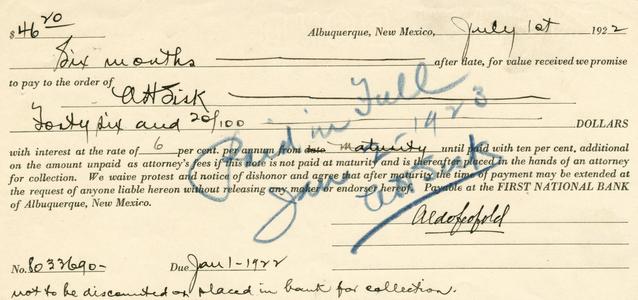 $46 20 Albuquerque, New Mexico, July 1st 1922
Six months after date, for value received we promise
to pay to the order of
A H Sisk
Forty six and 20/100
DOLLARS
with interest at the rate of 6 per cent. per annum from date maturity until paid with ten per cent, additional
on the amount unpaid as attorney's fees if this note is not paid at maturity and is thereafter placed in the hands of an attorney
for collection. We waive protest and notice of dishonor and agree that after maturity the time of payment may be extended at
the request of anyone liable hereon without releasing any maker or endorser hereof. Payable at the FIRST NATIONAL BANK
of Albuquerque, New Mexico.
Paid in Full
Jan 2 - 1923
A H Sisk
Aldo Leopold
No. Due Jan 1 - 1922
not to be discounted or placed in bank for collection.